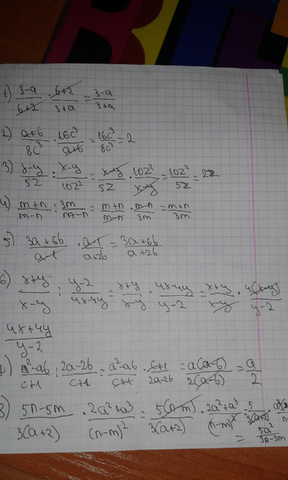 1) (3-a)/(b+2) · (b+2)/(3+a) = (3-a)/(3+a)
2) (a+b)/(8c³) · (16c³)/(a+b) = (16c³)/(8c³) = 2
3) (x-y)/(5z) : (x-y)/(10z²) = (x-y)/(5z) · (10z²)/(x-y) = (10z²)/(5z) = 2z
4) (m+n)/(m-n) : (3m)/(m-n) = (m+n)/(m-n) · (m-n)/(3m) = (m+n)/(3m)
5) (3a+6b)/(a-1) · (a-1)/(a+2b) = (3a+6b)/(a+2b)
6) (x+y)/(x-y) : (y-2)/(4x-4y) = (x+y)/(x-y) · (4x-4y)/(y-2) = (x+y)/(x-y) · 4(x-y)/(y-2)
(4x+4y)/(y-2)
7) (a²-ab)/(c+1) : (2a-2b)/(c+1) = (a²-ab)/(c+1) · (c+1)/(2a-2b) = a(a-b)/2(a-b) = a/2
8) (5n-5m)/3(a+2) · (2a²+a³)/(n-m)² = 5(n-m)/3(a+2) · (2a²+a³)/(n-m)²
= 5a²/(3n-3m)